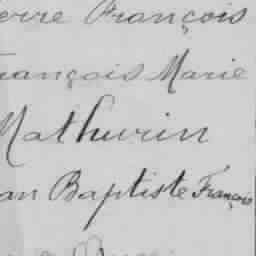 erre François
rançois Marie
Mathurin
an Baptiste François